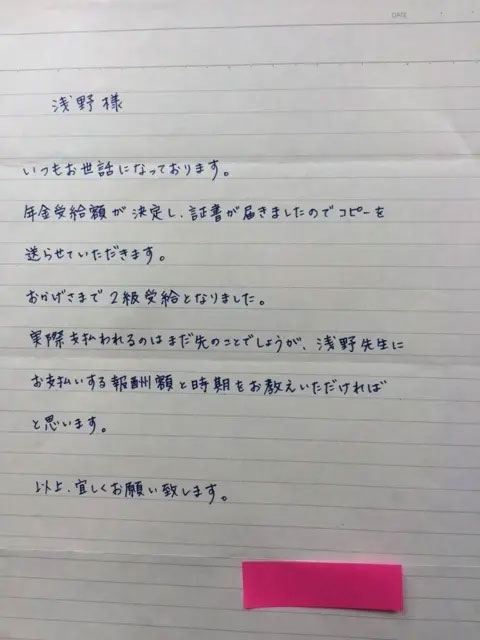 DATE
浅野様
いつもお世話になっております。
年金受給額が決定し、証書が届きましたのでコピーを
送らせていただきます。
おかげさまで2級受給となりました。
実際支払われるのはまだ先のことでしょうが、浅野先生に
お支払いする報酬額と時期をお教えいただければ
と思います。
以上、宜しくお願い致します。